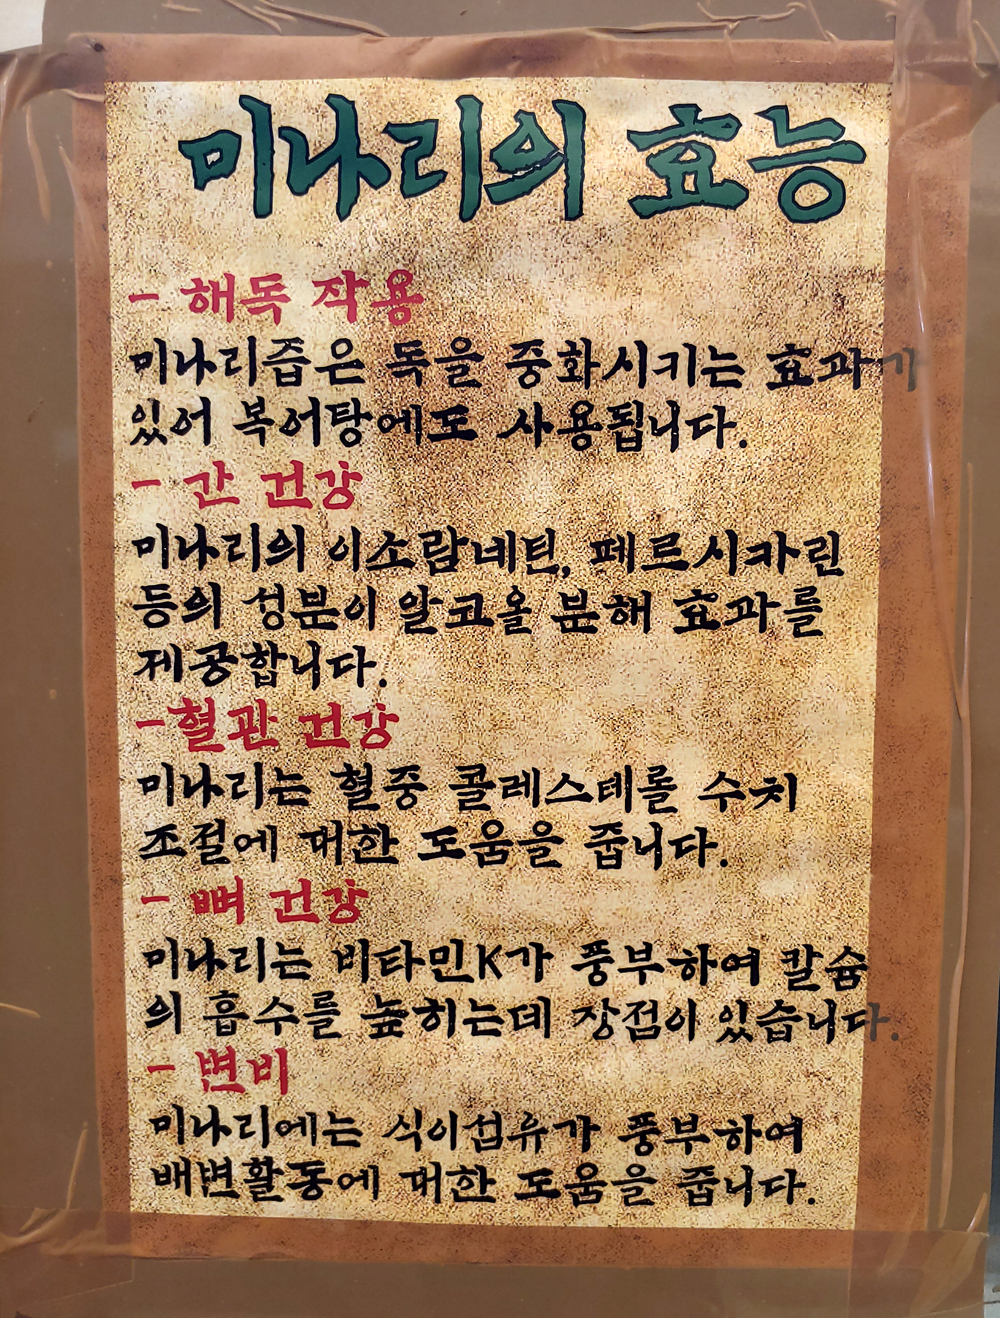 미나리의 효능
- 해독 작용
미나리즙은 독을 중화시키는 효과가
있어 복어탕에도 사용됩니다.
- 간 건강
미나리의 이소람네틴, 페르시카린
등의 성분이 알코올 분해 효과를
제공합니다.
-혈관 건강
미나리는 혈중 콜레스테롤 수치
조절에 대한 도움을 줍니다.
- 뼈 건강
미나리는 비타민K가 풍부하여 칼슘
의 흡수를 높히는데 장점이 있습니다.
- 변비
미나리에는 식이섬유가 풍부하여
배변활동에 대한 도움을 줍니다.